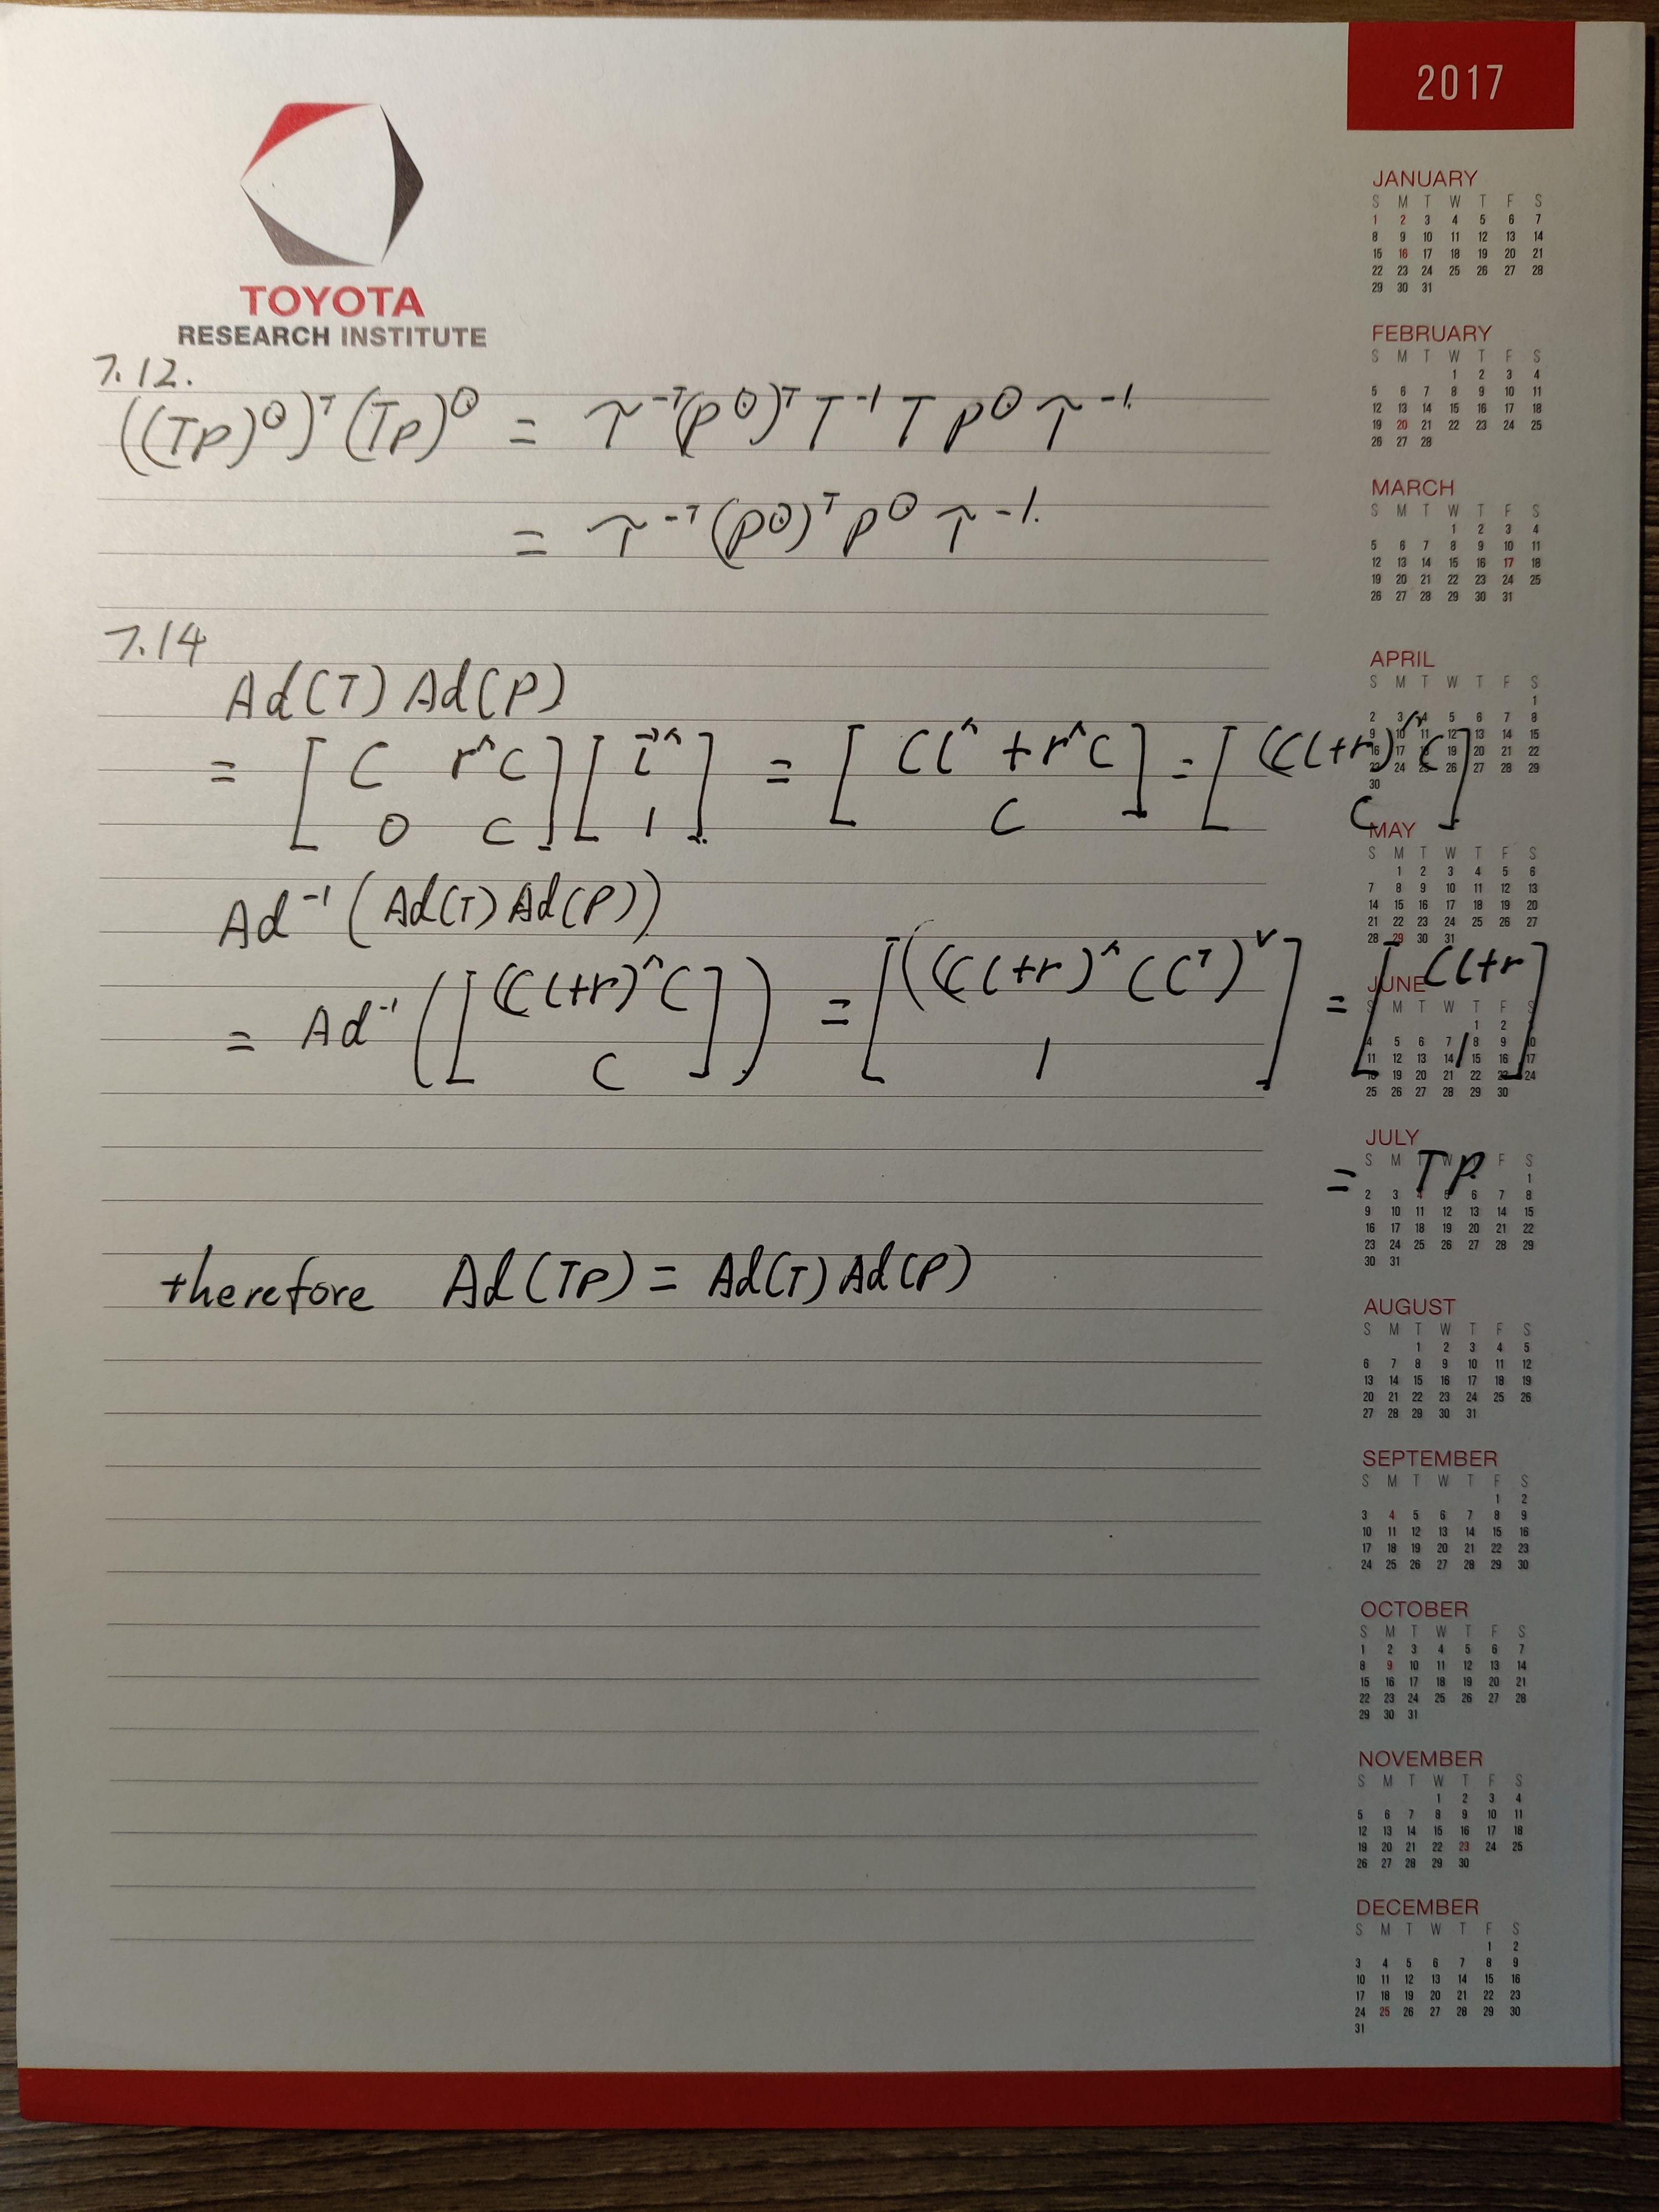 2017
TOYOTA
RESEARCH INSTITUTE
7.12.
((Tp)^⊙)^T (Tp)^⊙ = 𝒯^{-T}(p^⊙)^T T^{-1} T p^⊙ 𝒯^{-1}.
= 𝒯^{-T}(p^⊙)^T p^⊙ 𝒯^{-1}.
7.14
Ad(T) Ad(P)
= [C r^∧C; 0 C] [ι^∧; 1] = [Cι^∧ + r^∧C; C] = [(Cι+r)^∧C; C]
Ad^{-1}(Ad(T) Ad(P))
= Ad^{-1}([(Cι+r)^∧C; C]) = [((Cι+r)^∧ CC^T)^∨; 1] = [Cι+r; 1]
= TP
therefore Ad(TP) = Ad(T) Ad(P)
JANUARY
S M T W T F S
1 2 3 4 5 6 7
8 9 10 11 12 13 14
15 16 17 18 19 20 21
22 23 24 25 26 27 28
29 30 31
FEBRUARY
S M T W T F S
1 2 3 4
5 6 7 8 9 10 11
12 13 14 15 16 17 18
19 20 21 22 23 24 25
26 27 28
MARCH
S M T W T F S
1 2 3 4
5 6 7 8 9 10 11
12 13 14 15 16 17 18
19 20 21 22 23 24 25
26 27 28 29 30 31
APRIL
S M T W T F S
1
2 3 4 5 6 7 8
9 10 11 12 13 14 15
16 17 18 19 20 21 22
23 24 25 26 27 28 29
30
MAY
S M T W T F S
1 2 3 4 5 6
7 8 9 10 11 12 13
14 15 16 17 18 19 20
21 22 23 24 25 26 27
28 29 30 31
JUNE
S M T W T F S
1 2 3
4 5 6 7 8 9 10
11 12 13 14 15 16 17
18 19 20 21 22 23 24
25 26 27 28 29 30
JULY
S M T W T F S
1
2 3 4 5 6 7 8
9 10 11 12 13 14 15
16 17 18 19 20 21 22
23 24 25 26 27 28 29
30 31
AUGUST
S M T W T F S
1 2 3 4 5
6 7 8 9 10 11 12
13 14 15 16 17 18 19
20 21 22 23 24 25 26
27 28 29 30 31
SEPTEMBER
S M T W T F S
1 2
3 4 5 6 7 8 9
10 11 12 13 14 15 16
17 18 19 20 21 22 23
24 25 26 27 28 29 30
OCTOBER
S M T W T F S
1 2 3 4 5 6 7
8 9 10 11 12 13 14
15 16 17 18 19 20 21
22 23 24 25 26 27 28
29 30 31
NOVEMBER
S M T W T F S
1 2 3 4
5 6 7 8 9 10 11
12 13 14 15 16 17 18
19 20 21 22 23 24 25
26 27 28 29 30
DECEMBER
S M T W T F S
1 2
3 4 5 6 7 8 9
10 11 12 13 14 15 16
17 18 19 20 21 22 23
24 25 26 27 28 29 30
31